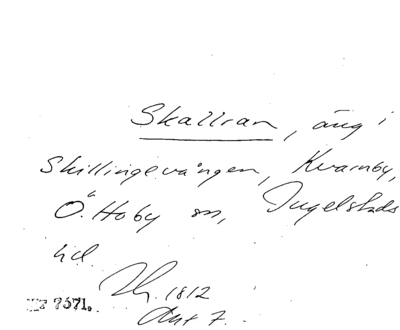 Skallran, äng i
Skillingevången, Kvarnby,
Ö. Hoby sn, Ingelstads
hd.
1812
Akt 7.
7571.